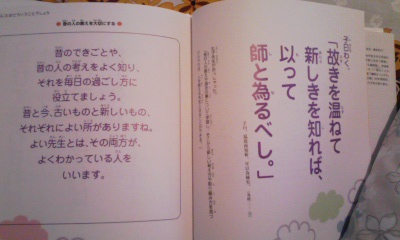 昔の人の教えを大切にする
昔のできごとや、
昔の人の考えをよく知り、
それを毎日の過ごし方に
役立てましょう。
昔と今、古いものと新しいもの、
それぞれによい所がありますね。
よい先生とは、その両方が、
よくわかっている人を
いいます。
子曰わく、
「故きを温ねて
新しきを知れば、
以って
師と為るべし。」